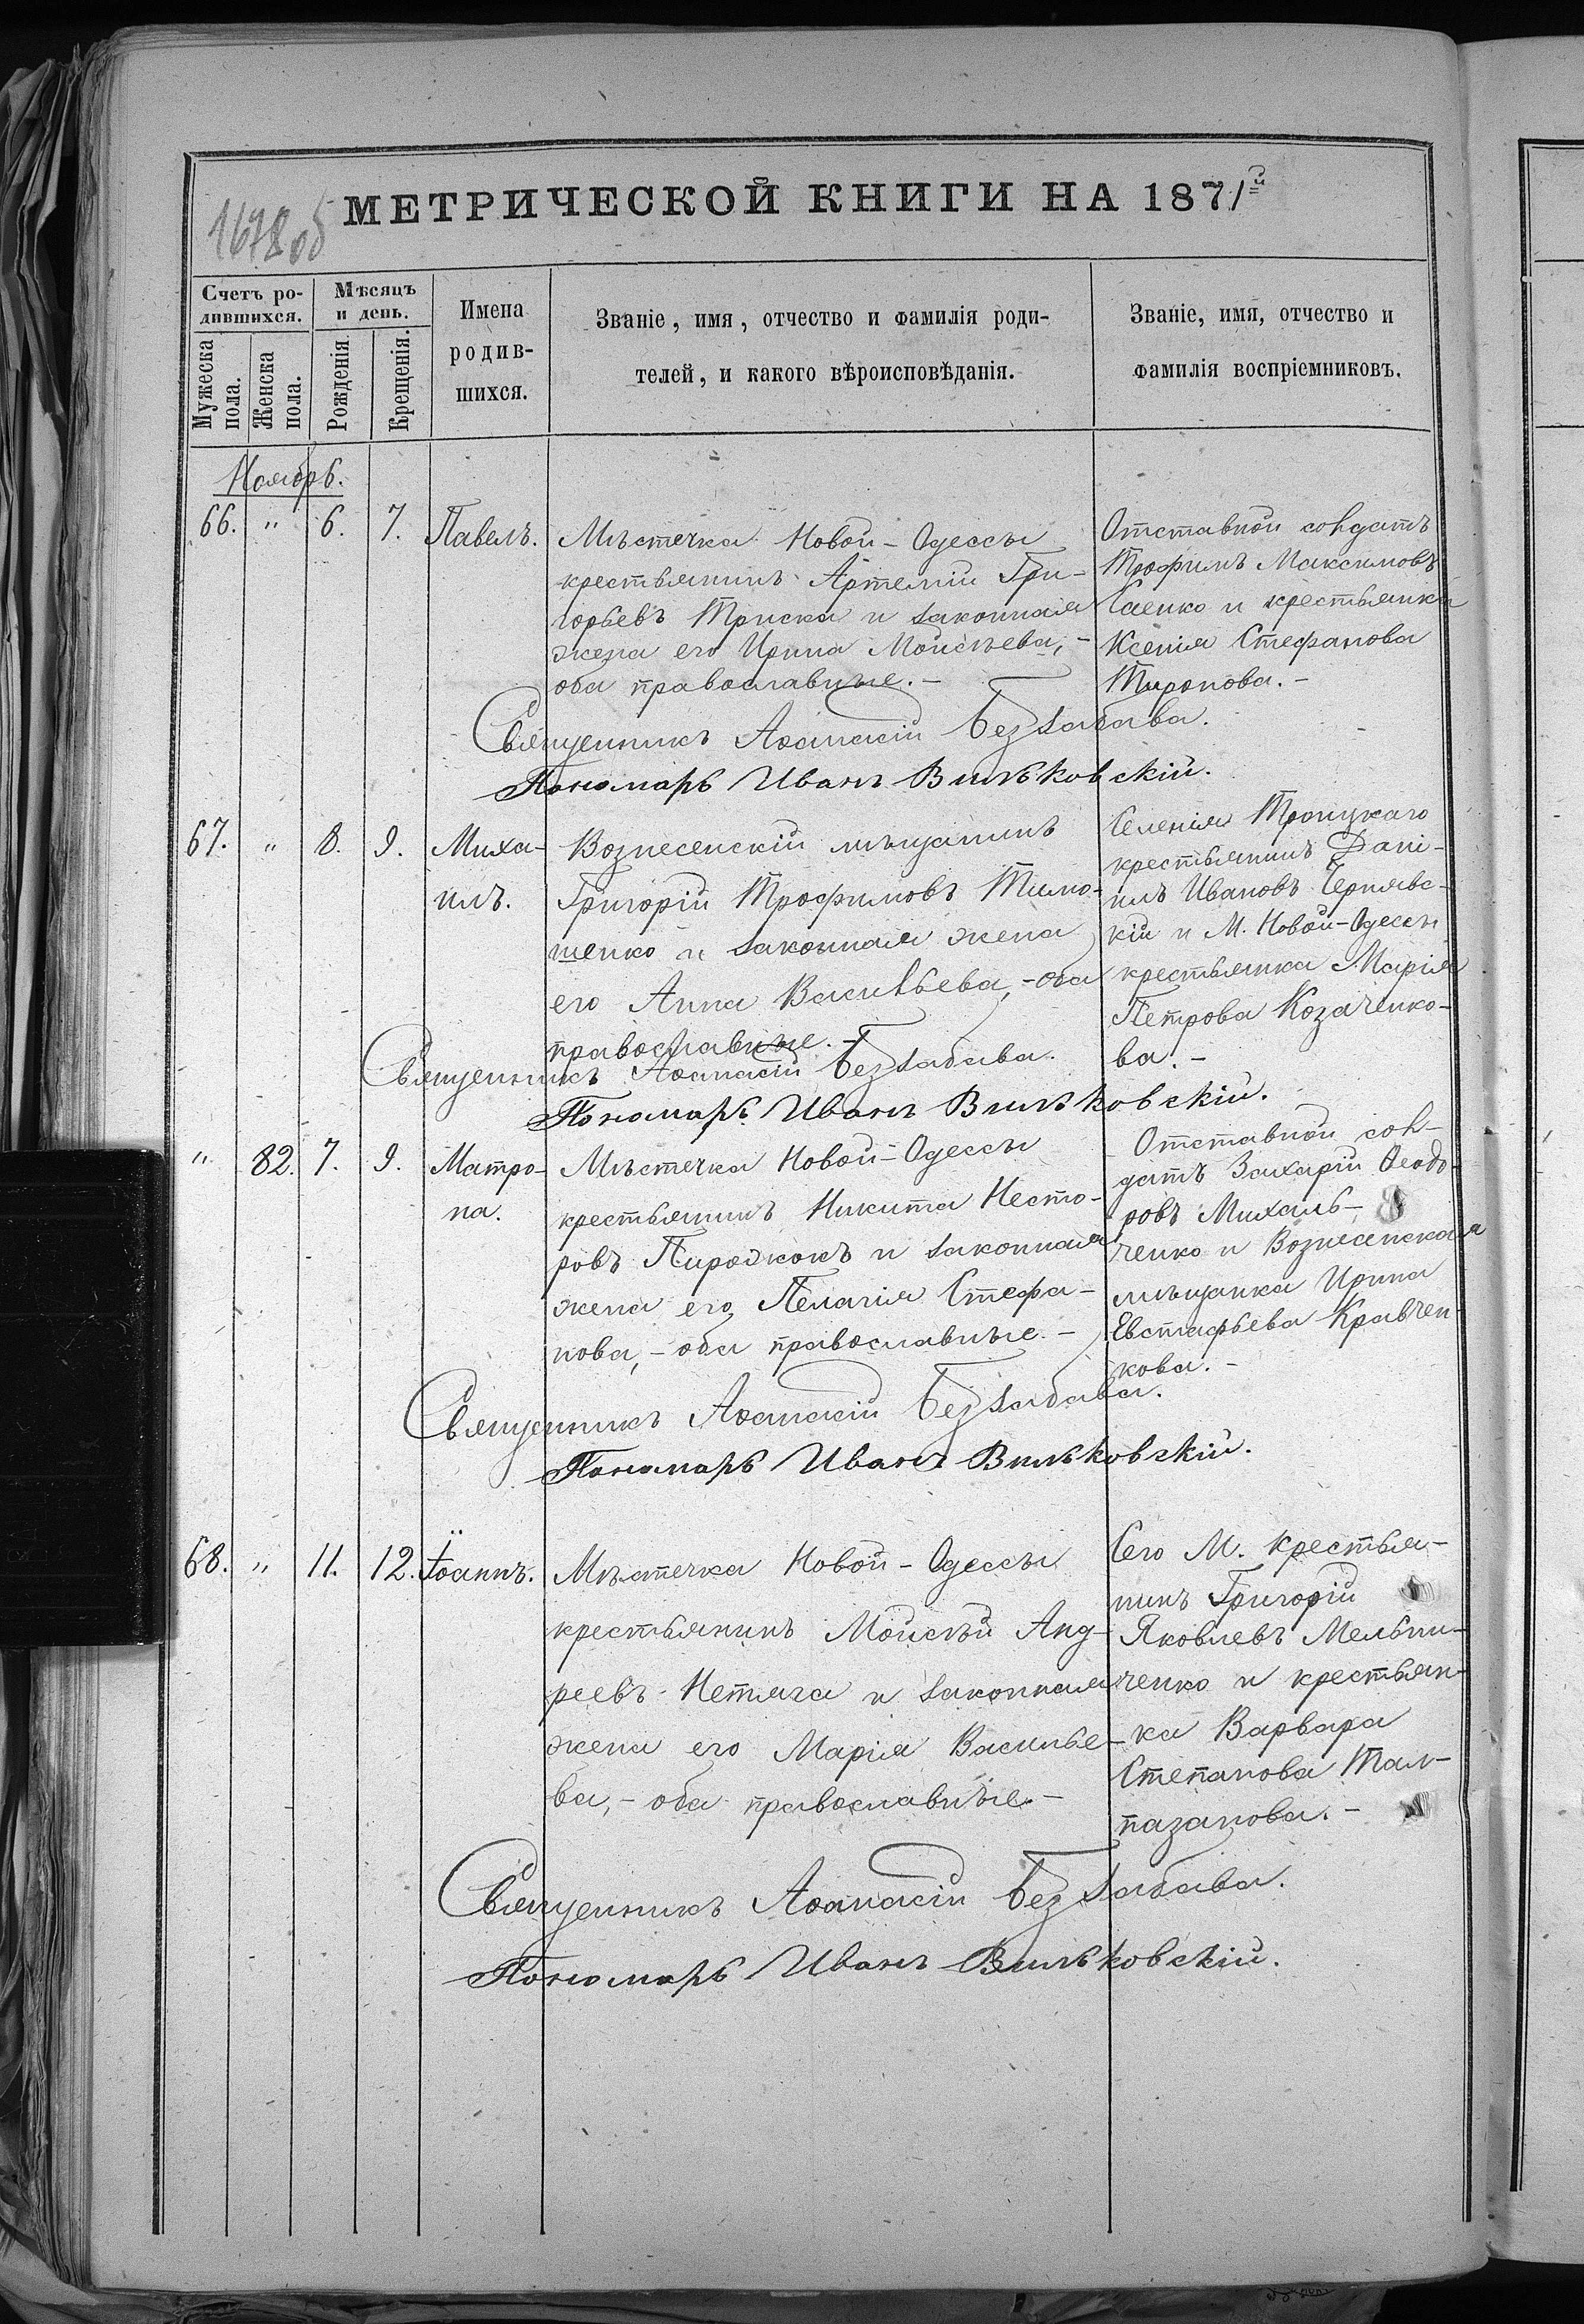 1678 об
МЕТРИЧЕСКОЙ КНИГИ НА 1871й
Счетъ ро-
дившихся.
Мужеска
пола.
Женска
пола.
Мѣсяцъ
и день.
Рожденія
Крещенія.
Имена
родив-
шихся.
Званіе, имя, отчество и фамилія роди-
телей, и какого вѣроисповѣданія.
Званіе, имя, отчество и
фамилія воспріемниковъ.
Ноябрь.
66. " 6. 7. Павелъ.
Мѣстечка Новой-Одессы
крестьянинъ Артемій Гри-
горьевъ Триска и законная
жена его Ирина Мойсѣева, -
оба православные. -
Отставной солдатъ
Трофимъ Максимовъ
Саенко и крестьянка
Ксенія Стефанова
Тиронова. -
Священникъ Аѳанасій Беззабава.
Пономарь Иванъ Вильковскій.
67. " 8. 9. Миха-
илъ.
Вознесенскій мѣщанинъ
Григорій Трофимовъ Тимо-
шенко и законная жена
его Анна Васильева, - оба
православные. -
Селенія Троицкаго
крестьянинъ Дані-
илъ Ивановъ Чернявс-
кій и М. Новой-Одессы
крестьянка Марія
Петрова Козаченко-
ва. -
Священникъ Аѳанасій Беззабава.
Пономарь Иванъ Вильковскій.
" 82. 7. 9. Матро-
на.
Мѣстечка Новой-Одессы
крестьянинъ Никита Несто-
ровъ Пирожокъ и законная
жена его Пелагія Стефа-
нова, - оба православные. -
Отставной сол-
датъ Захарій Ѳеодо-
ровъ Михаль-
ченко и Вознесенская
мѣщанка Ирина
Евстафьева Кравчен-
кова. -
Священникъ Аѳанасій Беззабава.
Пономарь Иванъ Вильковскій.
68. " 11. 12. Іоаннъ.
Мѣстечка Новой-Одессы
крестьянинъ Мойсѣй Анд-
реевъ Нетяга и законная
жена его Марія Василье-
ва, - оба православные. -
Сего М. крестья-
нинъ Григорій
Яковлевъ Мельни-
ченко и крестьян-
ка Варвара
Степанова Тал-
пазанова. -
Священникъ Аѳанасій Беззабава.
Пономарь Иванъ Вильковскій.